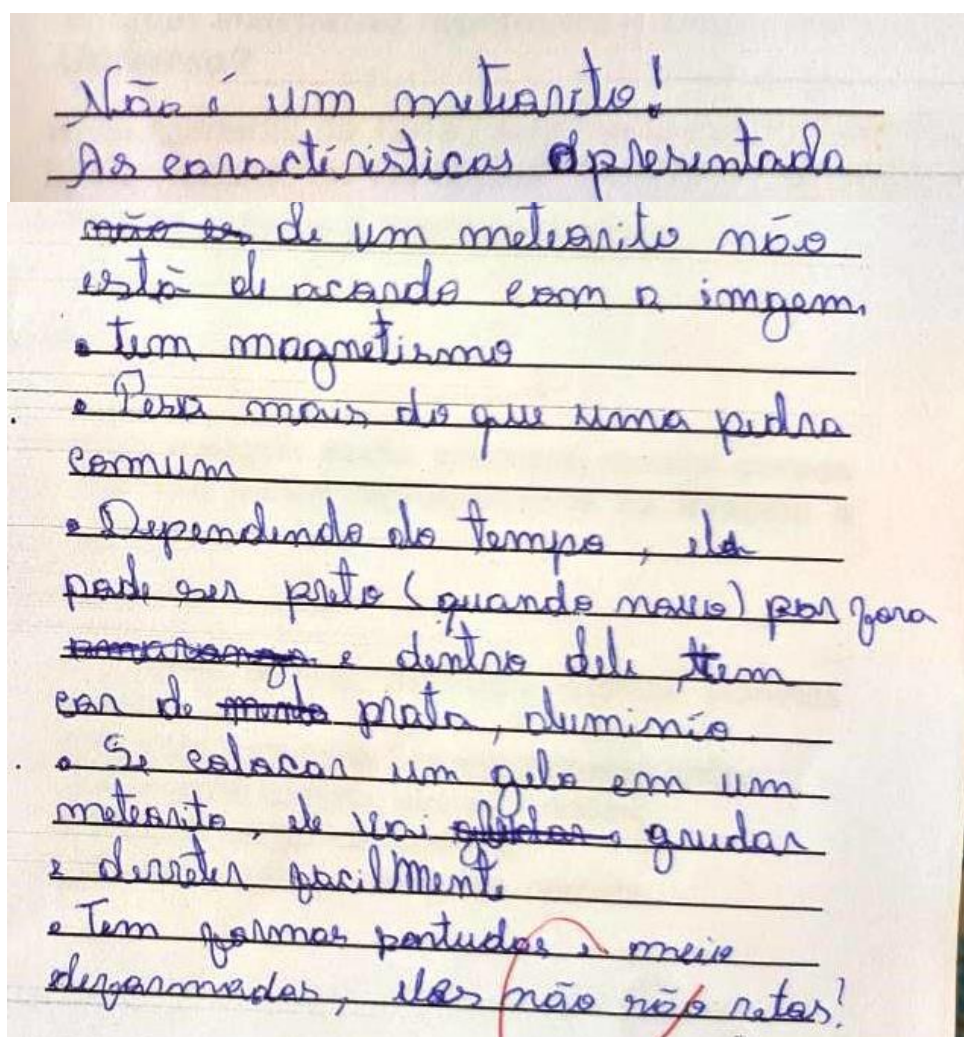 Não é um meteorito!
As caractéristicas apresentada
não es de um meteorito não
está de acordo com a imgem.
• tem magnetismo
• Pesa mais do que uma pedra
comum
• Dependendo do tempo, ele
pode ser preto (quando novo) por fora
e dentro dele tem
cor de prata, aluminio.
• Se colocar um gelo em um
meteorito, ele vai grudar
e derreter facilmente
• Tem formas pontudas e meio
deformadas, elas não não retas!